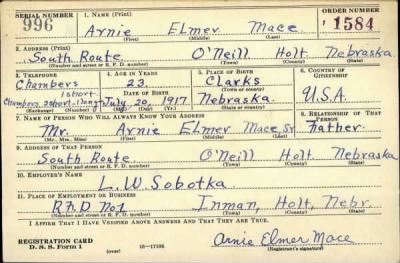 SERIAL NUMBER 1. NAME (Print) ORDER NUMBER
996 Arnie Elmer Mace 1584
(First) (Middle) (Last)
2. ADDRESS (Print)
South Route O'Neill Holt Nebraska
(Number and street or R. F. D. number) (Town) (County) (State)
3. TELEPHONE 4. AGE IN YEARS 5. PLACE OF BIRTH 6. COUNTRY OF CITIZENSHIP
Chambers 23 Clarks
1 short DATE OF BIRTH (Town or county)
Chambers 2 short - 1 long July 20, 1917 Nebraska U.S.A.
(Exchange) (Number) (Mo.) (Day) (Yr.) (State or country)
7. NAME OF PERSON WHO WILL ALWAYS KNOW YOUR ADDRESS 8. RELATIONSHIP OF THAT PERSON
Mr. Arnie Elmer Mace, Sr father
(Mr., Mrs., Miss) (First) (Middle) (Last)
9. ADDRESS OF THAT PERSON
South Route O'Neill Holt Nebraska
(Number and street or R. F. D. number) (Town) (County) (State)
10. EMPLOYER'S NAME
L. W. Sobotka
11. PLACE OF EMPLOYMENT OR BUSINESS
R.F.D. No 1 Inman, Holt, Nebr.
(Number and street or R. F. D. number) (Town) (County) (State)
I AFFIRM THAT I HAVE VERIFIED ABOVE ANSWERS AND THAT THEY ARE TRUE.
REGISTRATION CARD
D. S. S. Form 1 (over) 16-17105 Arnie Elmer Mace
(Registrant's signature)